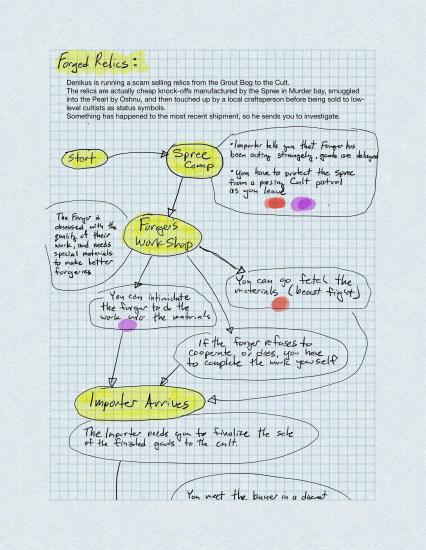 Forged Relics:
Denikus is running a scam selling relics from the Grout Bog to the Cult.
The relics are actually cheap knock-offs manufactured by the Spree in Murder bay, smuggled
into the Pearl by Oshnu, and then touched up by a local craftsperson before being sold to low-
level cultists as status symbols.
Something has happened to the most recent shipment, so he sends you to investigate.
Start
Spree
Camp
• Importer tells you that Forger has
been acting strangely, goods are delayed
• You have to protect the spree
from a passing Cult patrol
as you leave
The Forger is
obsessed with the
quality of their
work, and needs
special materials
to make better
forgeries
Forger's
Workshop
You can go fetch the
materials (beast fight)
You can intimidate
the forger to do the
work w/o the materials
If the forger refuses to
cooperate, or dies, you have
to complete the work yourself
Importer Arrives
The Importer needs you to finalize the sale
of the finished goods to the cult.
You meet the buyer in a discreet